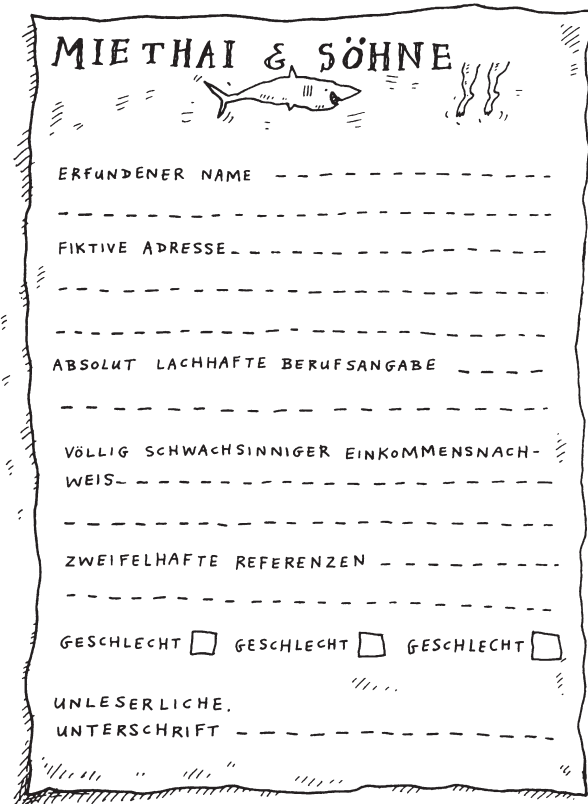 MIETHAI & SÖHNE
ERFUNDENER NAME
FIKTIVE ADRESSE
ABSOLUT LACHHAFTE BERUFSANGABE
VÖLLIG SCHWACHSINNIGER EINKOMMENSNACH-
WEIS
ZWEIFELHAFTE REFERENZEN
GESCHLECHT GESCHLECHT GESCHLECHT
UNLESERLICHE.
UNTERSCHRIFT